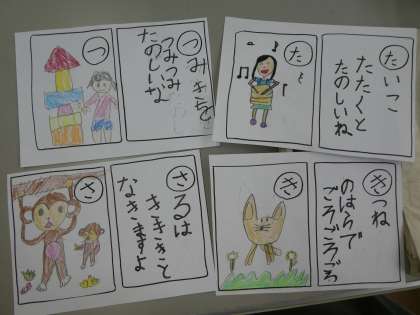 つ
つみきを
つみつみ
たのしいな
た
たいこ
たたくと
たのしいね
さ
さるは
きききと
なきますよ
き
きつね
のはらで
ごろごろごろ